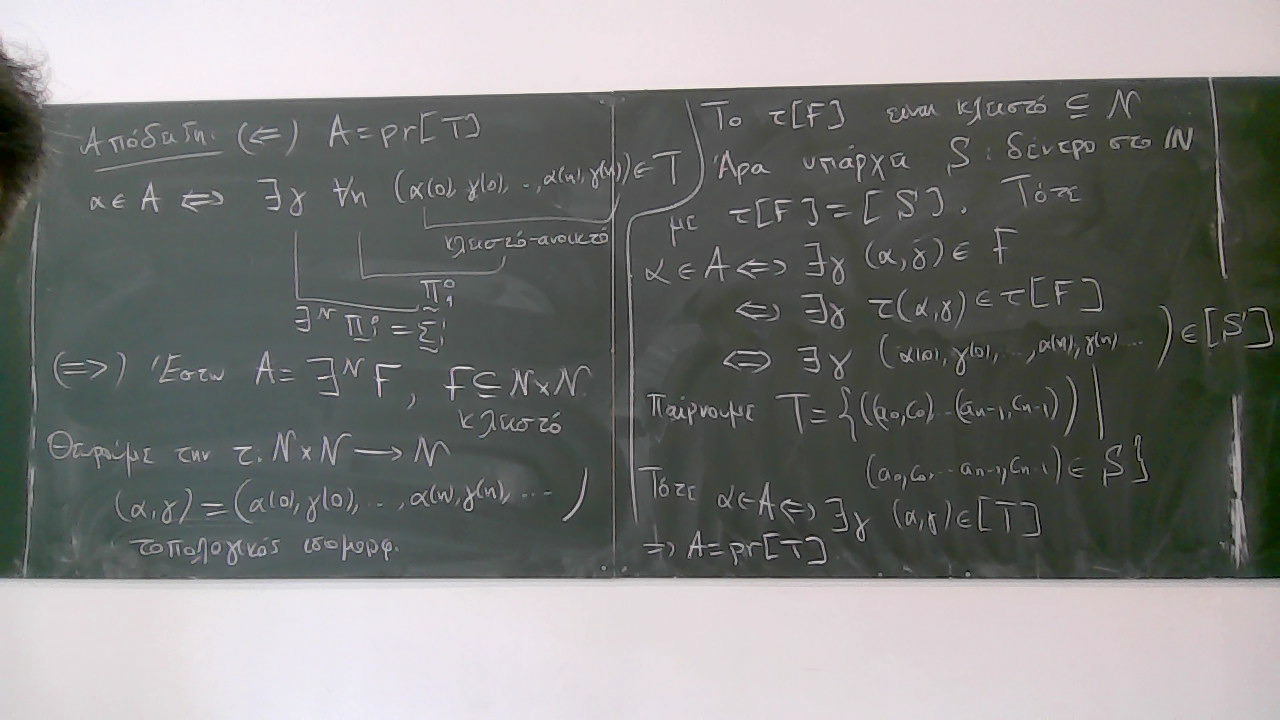 Απόδειξη: (⇐) A = pr[T]
α ∈ A ⇔ ∃γ ∀n (α(0), γ(0), .., α(n), γ(n)) ∈ T
κλειστό-ανοικτό
Π⁰₁
∃ᴺ Π⁰₁ = Σ¹₁
(⇒) Έστω A = ∃ᴺ F, F ⊆ N × N
κλειστό
Θεωρούμε την τ: N × N ⟶ N
(α, γ) = (α(0), γ(0), ..., α(n), γ(n), ... )
τοπολογικός ισομορφ.
Το τ[F] είναι κλειστό ⊆ N
Άρα υπάρχει S: δέντρο στο ℕ
με τ[F] = [S]. Τότε
α ∈ A ⇔ ∃γ (α, γ) ∈ F
⇔ ∃γ τ(α, γ) ∈ τ[F]
⇔ ∃γ (α(0), γ(0), .., α(n), γ(n) ... ) ∈ [S]
Παίρνουμε T = {((a₀, c₀) .. (aₙ₋₁, cₙ₋₁)) |
(a₀, c₀, .. aₙ₋₁, cₙ₋₁) ∈ S}
Τότε α ∈ A ⇔ ∃γ (α, γ) ∈ [T]
⇒ A = pr[T]